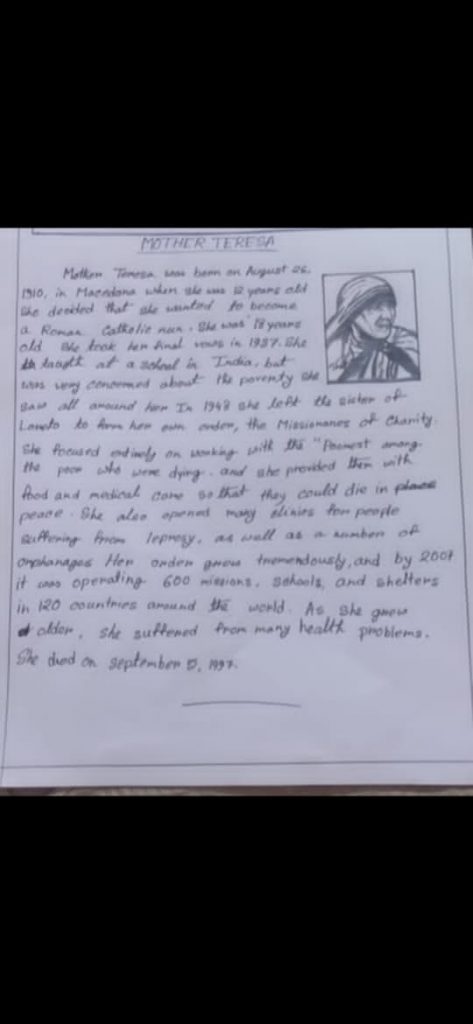 MOTHER TERESA
Mother Teresa was born on August 26,
1910, in Macedona when she was 12 years old
she decided that she wanted to become
a Roman Catholic nun. She was 18 years
old She took her final vows in 1937. She
taught at a school in India, but
was very concerned about the poverty she
saw all around her In 1948 she left the sister of
Loreto to form her own order, the Missionares of Charity.
She focused entirely on working with the "Poorest among
the poor who were dying. and she provided them with
food and medical care so that they could die in place
peace. She also opened many clinics for people
suffering from leprosy, as well as a number of
orphanages Her order grew tremendously, and by 2007
it was operating 600 missions, schools, and shelters
in 120 countries around the world. As she grew
older, she suffered from many health problems.
She died on September 5, 1997.